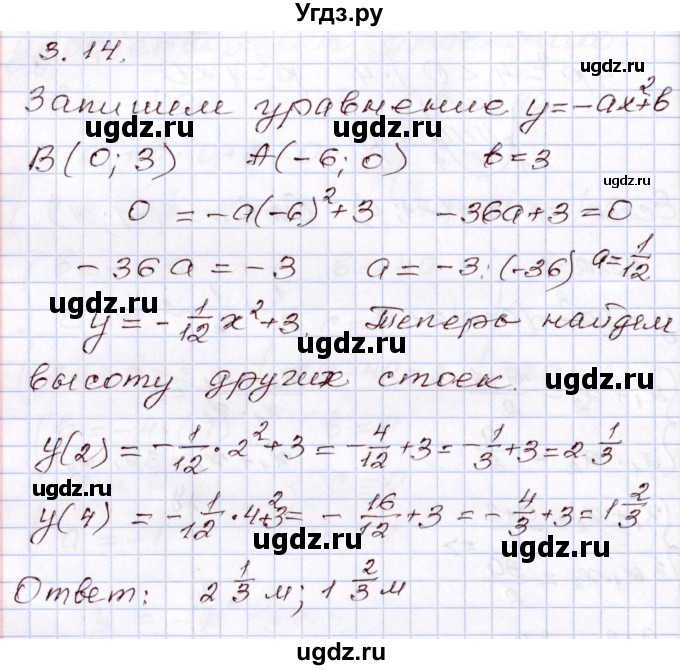 Угдз.ру
3.14.
ugdz.ru
Запишем уравнение y=-ax²+b
ugdz.ru ugdz.ru
B(0; 3) A(-6; 0) b=3
ugdz.ru
0 = -a(-6)²+3 -36a+3=0
-36a = -3 a = -3:(-36) a=1/12
ugdz.ru ugdz.ru
y = -1/12 x²+3. Теперь найдем
ugdz.ru
высоту других стоек.
ugdz.ru
y(2) = -1/12 · 2²+3 = -4/12+3 = -1/3+3 = 2 1/3
ugdz.ru
y(4) = -1/12 · 4²+3 = -16/12+3 = -4/3+3 = 1 2/3
ugdz.ru ugdz.ru
Ответ: 2 1/3 м; 1 2/3 м
ugdz.ru